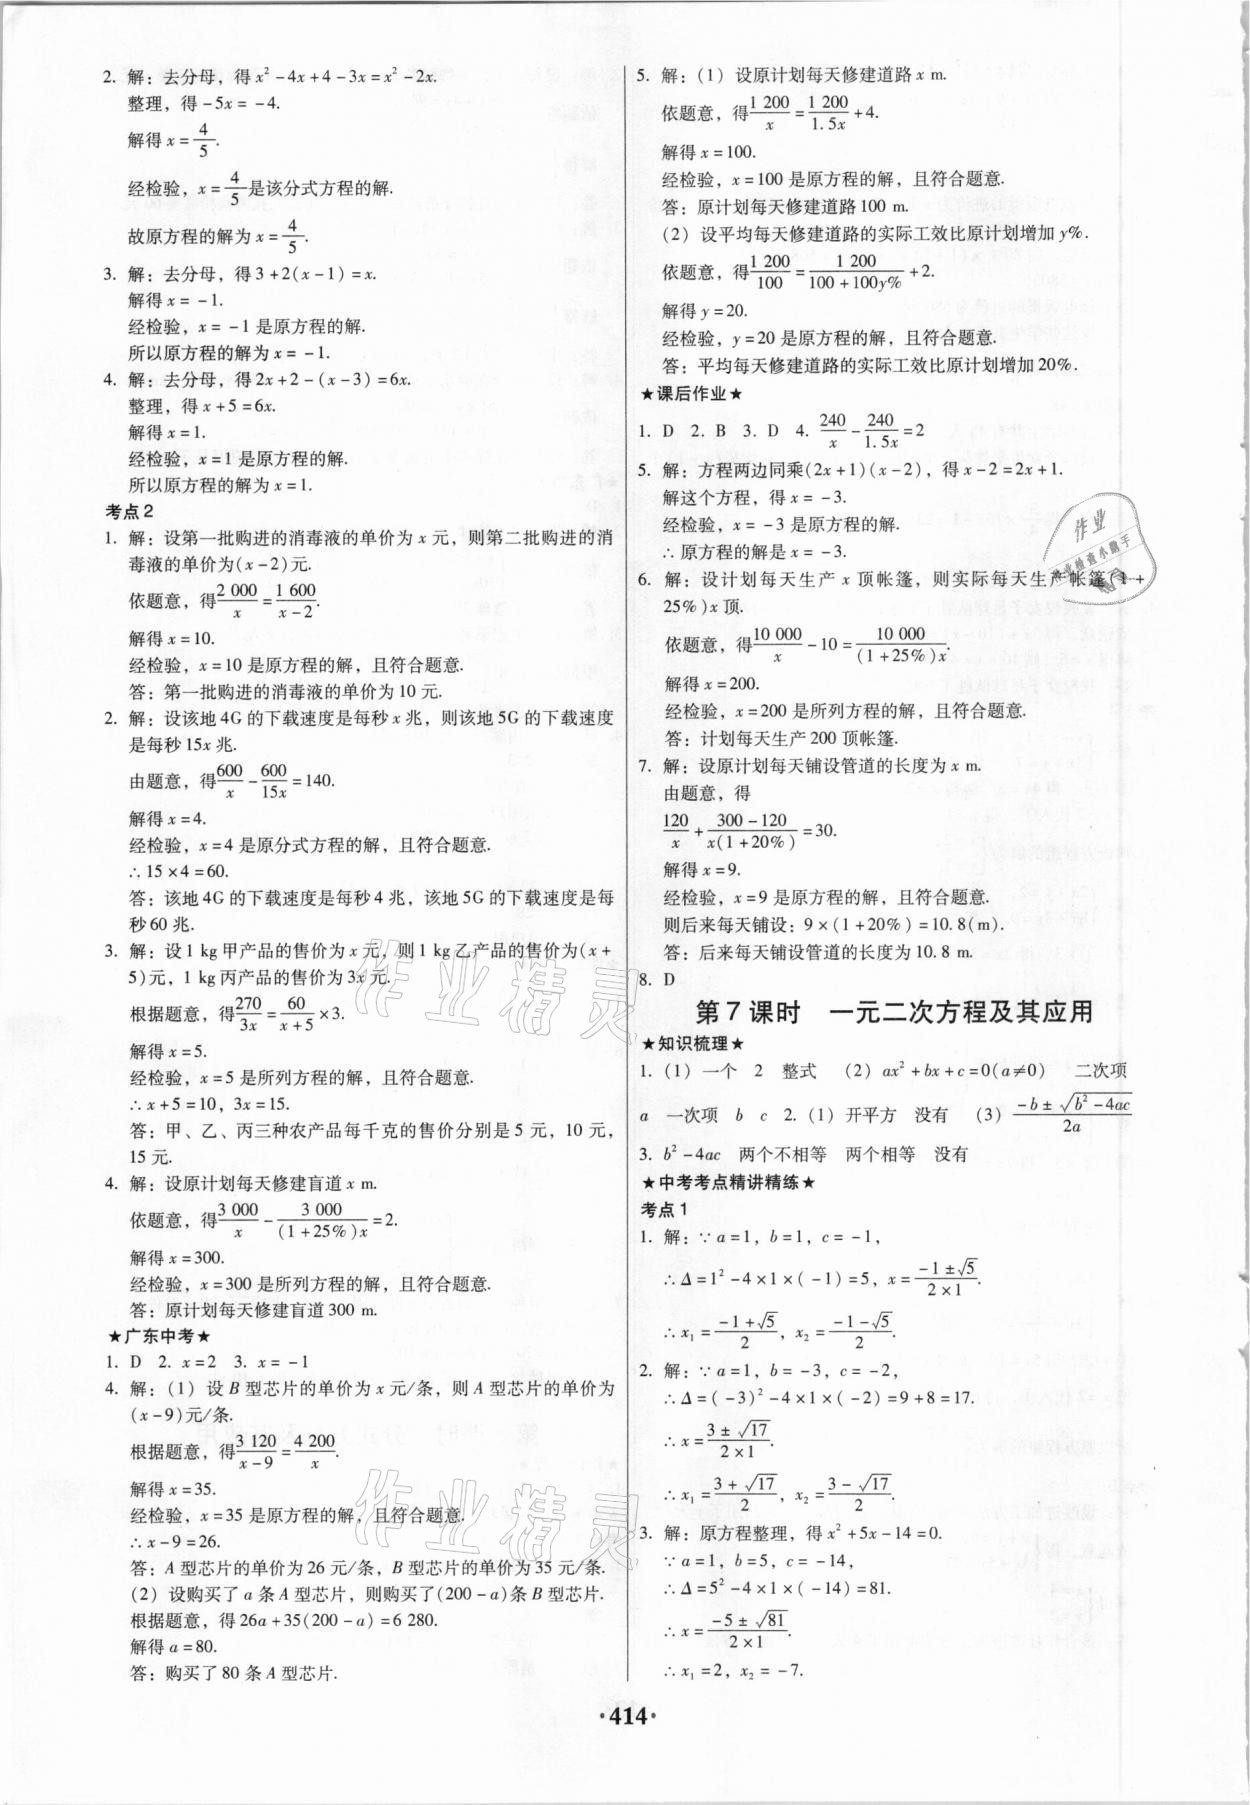 2. 解：去分母，得 x²-4x+4-3x=x²-2x.
整理，得-5x=-4.
解得 x=4/5.
经检验，x=4/5是该分式方程的解.
故原方程的解为 x=4/5.
3. 解：去分母，得 3+2(x-1)=x.
解得 x=-1.
经检验，x=-1 是原方程的解.
所以原方程的解为 x=-1.
4. 解：去分母，得 2x+2-(x-3)=6x.
整理，得 x+5=6x.
解得 x=1.
经检验，x=1 是原方程的解.
所以原方程的解为 x=1.
考点 2
1. 解：设第一批购进的消毒液的单价为 x 元，则第二批购进的消
毒液的单价为(x-2)元.
依题意，得2 000/x=1 600/(x-2).
解得 x=10.
经检验，x=10 是原方程的解，且符合题意.
答：第一批购进的消毒液的单价为 10 元.
2. 解：设该地 4G 的下载速度是每秒 x 兆，则该地 5G 的下载速度
是每秒 15x 兆.
由题意，得600/x-600/15x=140.
解得 x=4.
经检验，x=4 是原分式方程的解，且符合题意.
∴15×4=60.
答：该地 4G 的下载速度是每秒 4 兆，该地 5G 的下载速度是每
秒 60 兆.
3. 解：设 1 kg 甲产品的售价为 x 元，则 1 kg 乙产品的售价为(x+
5)元，1 kg 丙产品的售价为 3x 元.
根据题意，得270/3x=60/(x+5)×3.
解得 x=5.
经检验，x=5 是所列方程的解，且符合题意.
∴x+5=10，3x=15.
答：甲、乙、丙三种农产品每千克的售价分别是 5 元，10 元，
15 元.
4. 解：设原计划每天修建盲道 x m.
依题意，得3 000/x-3 000/(1+25%)x=2.
解得 x=300.
经检验，x=300 是所列方程的解，且符合题意.
答：原计划每天修建盲道 300 m.
★广东中考★
1. D 2. x=2 3. x=-1
4. 解：(1) 设 B 型芯片的单价为 x 元/条，则 A 型芯片的单价为
(x-9)元/条.
根据题意，得3 120/(x-9)=4 200/x.
解得 x=35.
经检验，x=35 是原方程的解，且符合题意.
∴x-9=26.
答：A 型芯片的单价为 26 元/条，B 型芯片的单价为 35 元/条.
(2) 设购买了 a 条 A 型芯片，则购买了(200-a)条 B 型芯片.
根据题意，得 26a+35(200-a)=6 280.
解得 a=80.
答：购买了 80 条 A 型芯片.
5. 解：(1) 设原计划每天修建道路 x m.
依题意，得1 200/x=1 200/1.5x+4.
解得 x=100.
经检验，x=100 是原方程的解，且符合题意.
答：原计划每天修建道路 100 m.
(2) 设平均每天修建道路的实际工效比原计划增加 y%.
依题意，得1 200/100=1 200/(100+100y%)+2.
解得 y=20.
经检验，y=20 是原方程的解，且符合题意.
答：平均每天修建道路的实际工效比原计划增加 20%.
★课后作业★
1. D 2. B 3. D 4. 240/x-240/1.5x=2
5. 解：方程两边同乘(2x+1)(x-2)，得 x-2=2x+1.
解这个方程，得 x=-3.
经检验，x=-3 是原方程的解.
∴原方程的解是 x=-3.
6. 解：设计划每天生产 x 顶帐篷，则实际每天生产帐篷(1+
25%)x 顶.
依题意，得10 000/x-10=10 000/(1+25%)x.
解得 x=200.
经检验，x=200 是所列方程的解，且符合题意.
答：计划每天生产 200 顶帐篷.
7. 解：设原计划每天铺设管道的长度为 x m.
由题意，得
120/x+(300-120)/x(1+20%)=30.
解得 x=9.
经检验，x=9 是原方程的解，且符合题意.
则后来每天铺设：9×(1+20%)=10.8(m).
答：后来每天铺设管道的长度为 10.8 m.
8. D
第 7 课时 一元二次方程及其应用
★知识梳理★
1. (1) 一个 2 整式 (2) ax²+bx+c=0(a≠0) 二次项
a 一次项 b c 2. (1) 开平方 没有 (3) (-b±√(b²-4ac))/2a
3. b²-4ac 两个不相等 两个相等 没有
★中考考点精讲精练★
考点 1
1. 解：∵a=1，b=1，c=-1，
∴Δ=1²-4×1×(-1)=5，x=(-1±√5)/(2×1).
∴x₁=(-1+√5)/2，x₂=(-1-√5)/2.
2. 解：∵a=1，b=-3，c=-2，
∴Δ=(-3)²-4×1×(-2)=9+8=17.
∴x=(3±√17)/(2×1).
∴x₁=(3+√17)/2，x₂=(3-√17)/2.
3. 解：原方程整理，得 x²+5x-14=0.
∵a=1，b=5，c=-14，
∴Δ=5²-4×1×(-14)=81.
∴x=(-5±√81)/(2×1).
∴x₁=2，x₂=-7.
·414·
作业精灵
作业精灵
作业